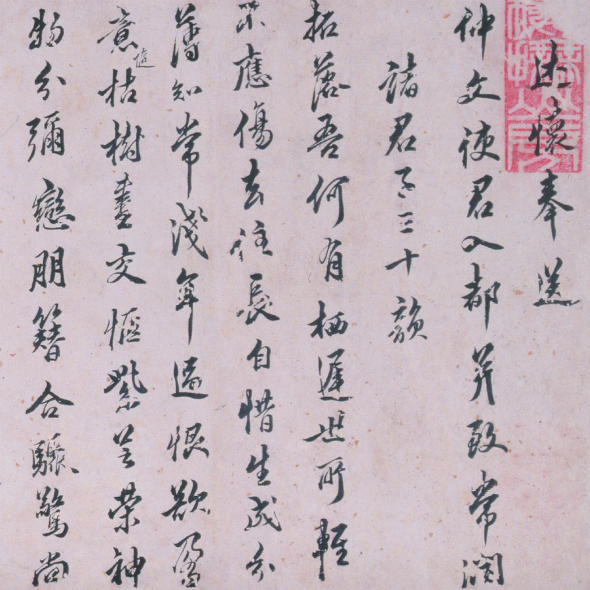 述懷奉送
仲文使君入都并致常潤
諸君子三十韻
拓落吾何有栖遲世所輕
榮應傷去住長自惜生成分
薄知常淺年過恨欲盈
意枯樹書交愜紫芝榮神
物分彌戀朋簪合驟驚尚